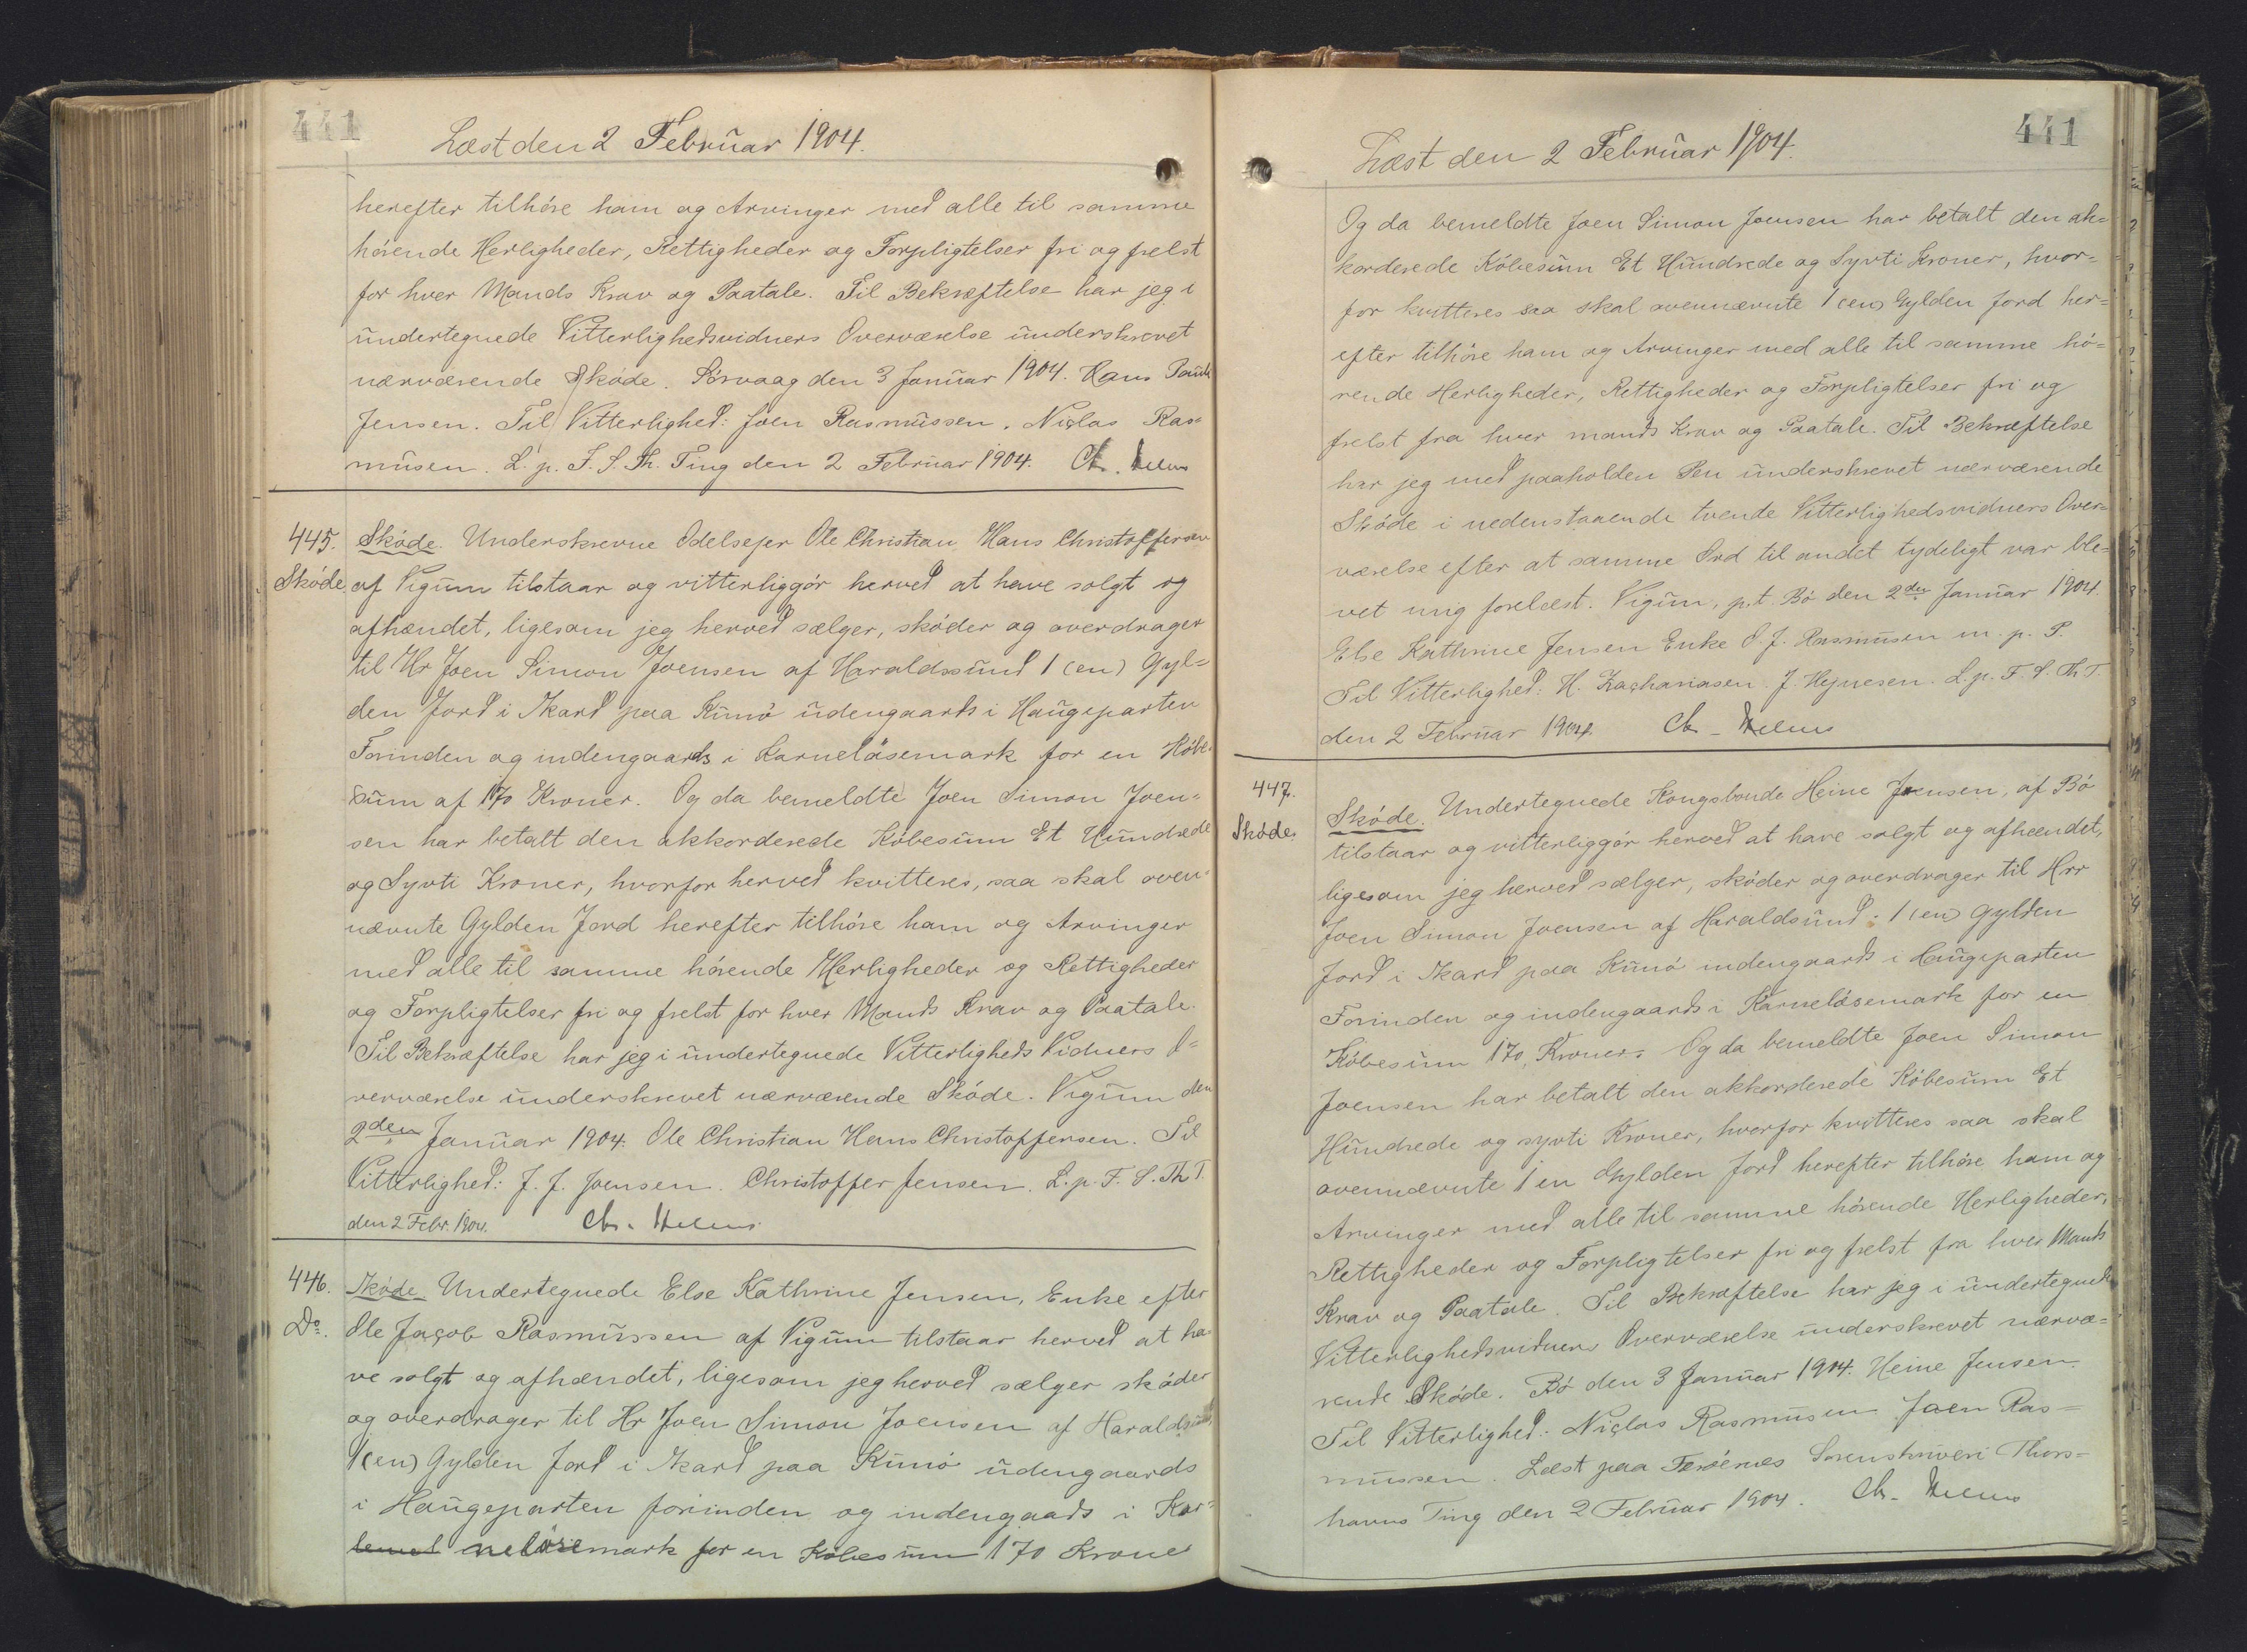 441
Læst den 2 Februar 1904.
herefter tilhöre ham og Arvinger med alle til samme
hörende Herligheder, Rettigheder og Forpligtelser fri og frelst
for hver Mands Krav og Paatale. Til Bekræftelse har jeg i
undertegnede Vitterlighedsvidners Overværelse underskrevet
nærværende Sköde. Sörvaag den 3 Januar 1904. Hans Pauli
Jensen. Til Vitterlighed: Joen Rasmussen. Niclas Ras=
musen. L. p. F. S. Th. Ting den 2 Februar 1904. Chr. Helms
445. Sköde. Underskrevne Odelsejer Ole Christian Hans Christoffersen
Sköde. af Vigum tilstaar og vitterliggör herved at have solgt og
afhændet, ligesom jeg herved sælger, sköder og overdrager
til Hr Joen Simon Joensen af Haraldssund 1 (en) Gyl=
den Jord i Skard paa Kunö udengaards i Haugeparten
Forinden og indengaards i Karnelösemark for en Köbe=
sum af 170 Kroner. Og da bemeldte Joen Simon Joen=
sen har betalt den akkorderede Köbesum Et Hundrede
og Syvti Kroner, hvorfor herved kvitteres, saa skal oven=
nævnte Gylden Jord herefter tilhöre ham og Arvinger
med alle til samme hörende Herligheder og Rettigheder
og Forpligtelser fri og frelst for hver Mands Krav og Paatale.
Til Bekræftelse har jeg i undertegnede Vitterligheds Vidners O=
verværelse underskrevet nærværende Sköde. Vigum den
2den Januar 1904. Ole Christian Hans Christoffersen. Til
Vitterlighed: J. J. Joensen. Christoffer Jensen. L. p. F. S. Th T.
den 2 Febr. 1904. Chr. Helms
446. Sköde. Undertegnede Else Kathrine Jensen, Enke efter
Do. Ole Jacob Rasmussen af Vigum tilstaar herved at ha=
ve solgt og afhændet, ligesom jeg herved sælger sköder
og overdrager til Hr Joen Simon Joensen af Haraldssund
1 (en) Gylden Jord i Skard paa Kunö udengaards
i Haugeparten forinden og indengaards i Kar=
nelösemark for en Köbesum 170 Kroner
441
Læst den 2 Februar 1904.
Og da bemeldte Joen Simon Joensen har betalt den ak=
korderede Köbesum Et Hundrede og Syvti Kroner, hvor=
for kvitteres saa skal ovennævnte 1 (en) Gylden Jord her=
efter tilhöre ham og Arvinger med alle til samme hö=
rende Herligheder, Rettigheder og Forpligtelser fri og
frelst fra hver mands Krav og Paatale. Til Bekræftelse
har jeg med paaholden Pen underskrevet nærværende
Sköde i nedenstaaende tvende Vitterlighedsvidners Over=
værelse efter at samme Ord til andet tydeligt var ble=
vet mig forelæst. Vigum, p.t. Bö den 2den Januar 1904.
Else Kathrine Jensen Enke O. J. Rasmusen m. p. P.
Til Vitterlighed: H. Zachariasen J. Hejnesen. L. p. F. S. Th T.
den 2 Februar 1904. Chr. Helms
447. Sköde. Undertegnede Kongsbonde Heine Jensen, af Bö
Sköde. tilstaar og vitterliggör herved at have solgt og afhændet,
ligesom jeg herved sælger, sköder og overdrager til Hrr
Joen Simon Joensen af Haraldsund: 1 (en) Gylden
Jord i Skard paa Kunö indengaards i Haugeparten
Forinden og indengaards i Karnelösemark for en
Köbesum 170 Kroner. Og da bemeldte Joen Simon
Joensen har betalt den akkorderede Köbesum Et
Hundrede og syvti Kroner, hvorfor kvitteres saa skal
ovennævnte 1 en Gylden Jord herefter tilhöre ham og
Arvinger med alle til samme hörende Herligheder,
Rettigheder og Forpligtelser fri og frelst fra hver Mands
Krav og Paatale. Til Bekræftelse har jeg i undertegnede
Vitterlighedsvidners Overværelse underskrevet nærvæ=
rende Sköde. Bö den 3 Januar 1904. Heine Jensen.
Til Vitterlighed: Niclas Rasmusen Joen Ras=
mussen. Læst paa Færöernes Sorenskriveri Thors=
havns Ting den 2 Februar 1904. Chr. Helms